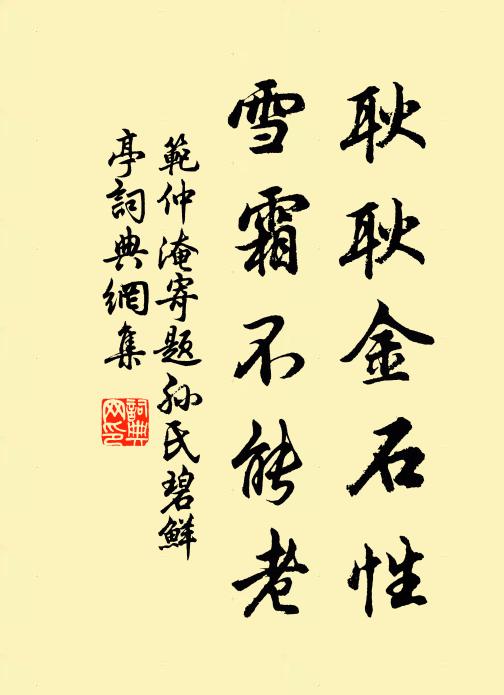 耿耿金石性
雪霜不能老
範仲淹寄題孙氏碧鮮
亭詞典網集
詞典
网印